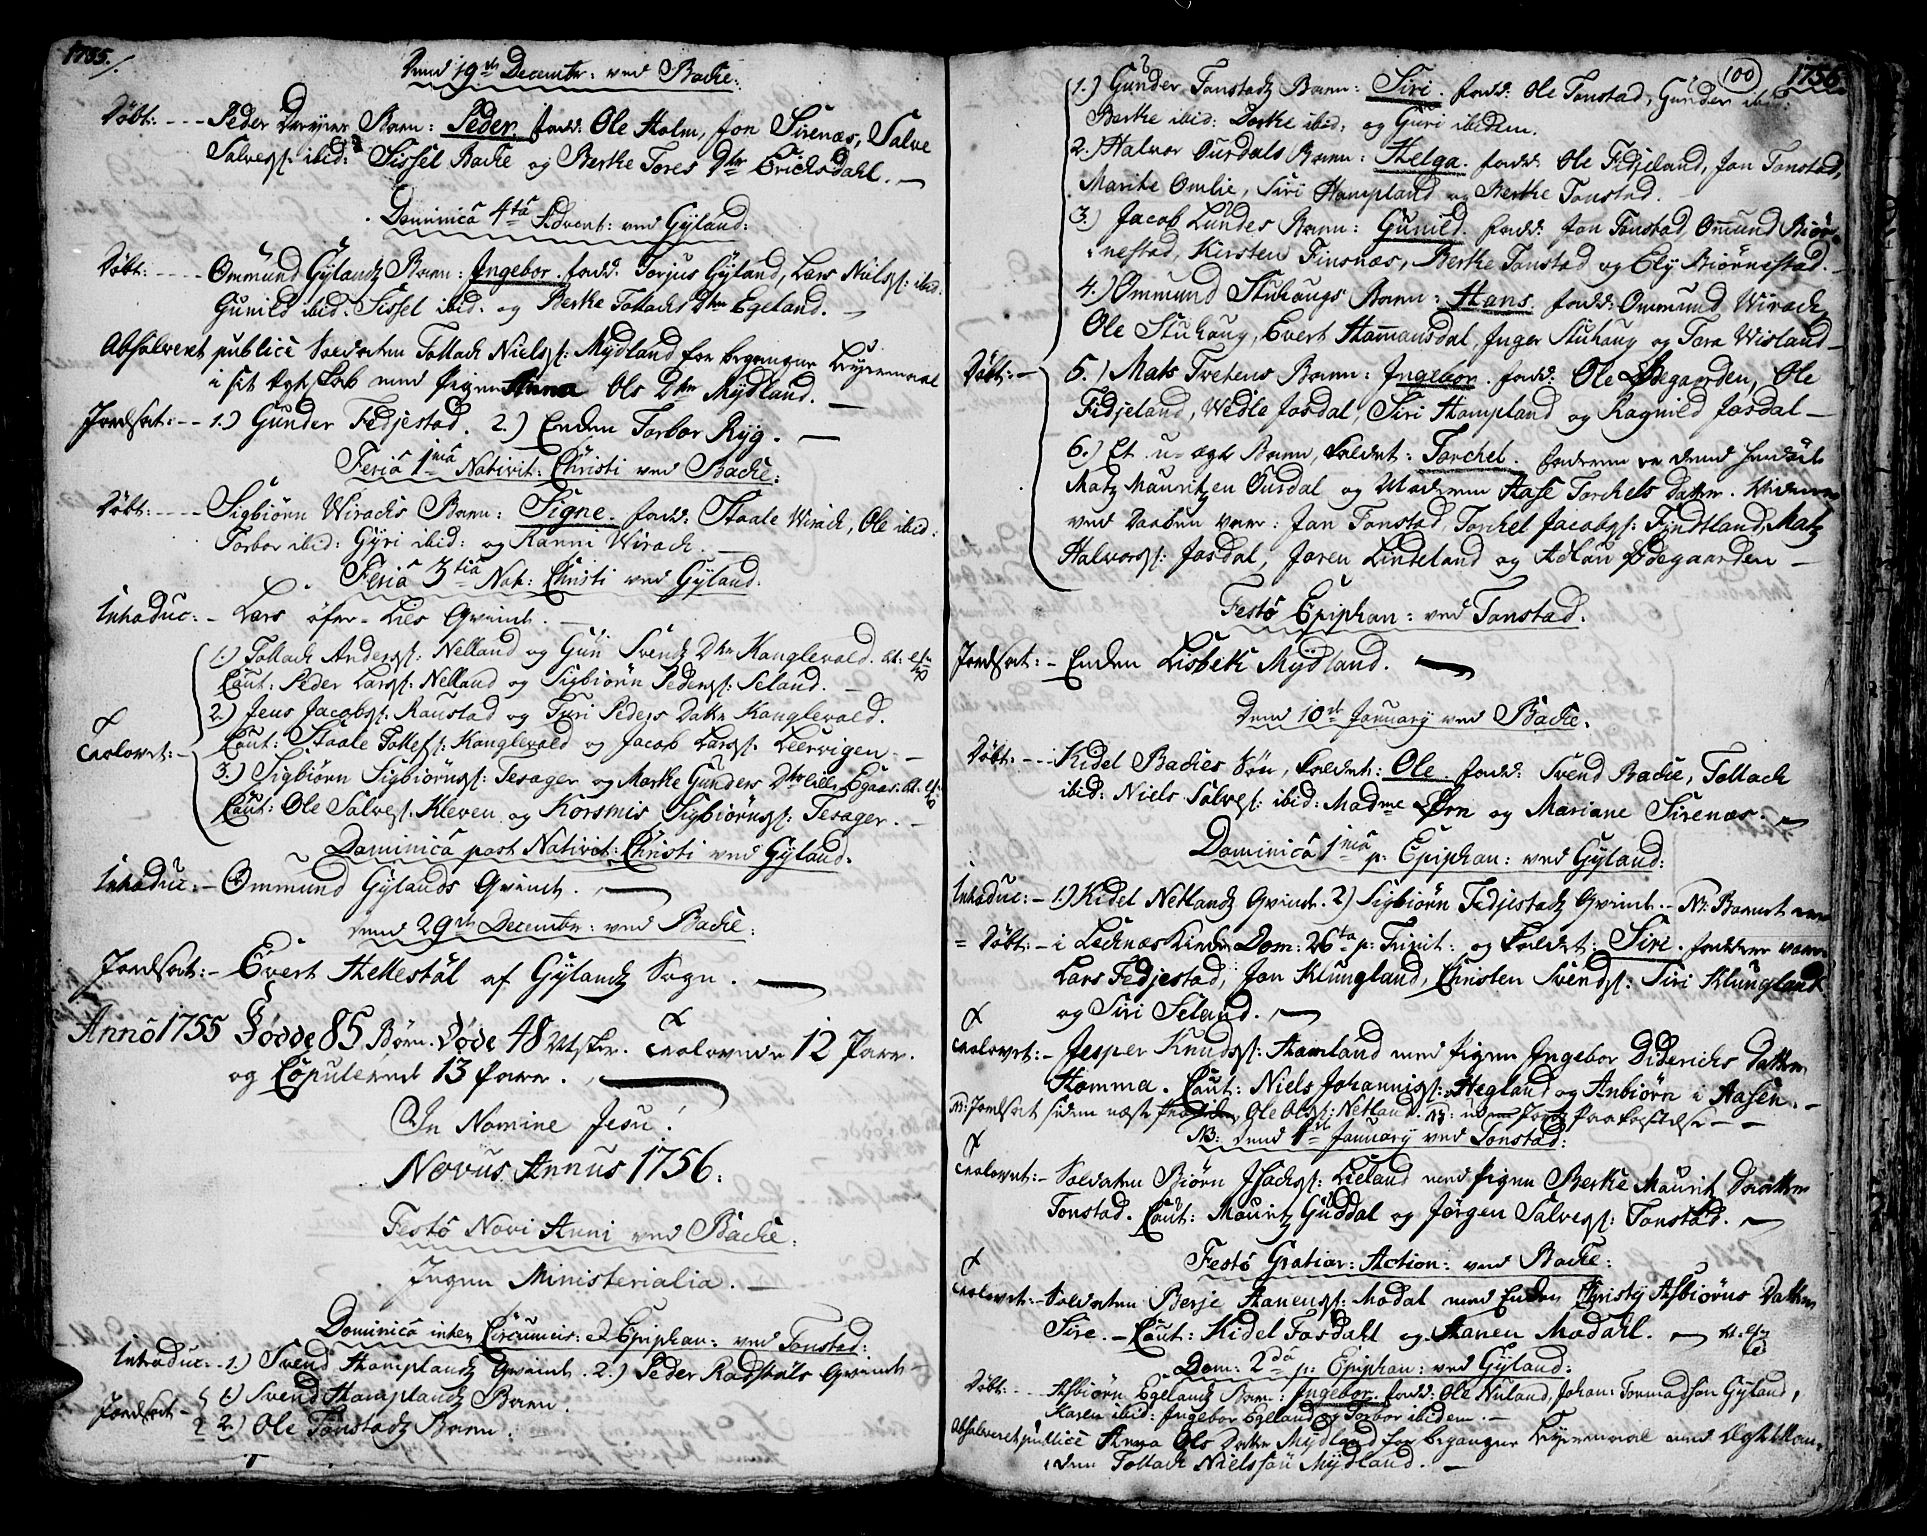 1755.
Dend 19de Decembr: ved Backe:
Døbt: - - - Peder Barn: Peder. fadd: Ole Holm, Jon Sirenæs, Salve
Salvess: ibid: Sissel Backe og Berthe Tores Dtr Erichsdahl.
Dominica 4ta Advent: ved Gyland:
Døbt: - - - Ommund Gylandz Barn: Ingebor. fadd: Torjus Gyland, Lars Nielss: ibid:
Gunild ibid: Sissel ibid: og Berthe Tollachs Dtr Egeland.
Absolveret publicè Soldaten Tollach Nielss: Mydland for begangne Leyermaal
i sit Egteskab med Pigen Anna Ols Dtr Mydland.
Jordfæst: - - 1.) Gunder Fedjestad. 2.) Enken Torbor Ryg.
Feria 1ma Nativit: Christi ved Backe:
Døbt: - - - Sigbiørn Wirachs Barn: Signe. fadd: Staale Wirach, Ole ibid:
Torbor ibid: Gyri ibid: og Ranni Wirach.
Feria 3tia Nat: Christi ved Gyland:
Introduc: - Lars øfre-Lies Qvinde.
1.) Tollach Anderss: Nelland og Guri Svends Dtr Kanglevald.
Caut: Peder Larss: Nelland og Sigbiørn Pederss: Seland.
2.) Jens Jacobss: Raustad og Turi Peders Datter Kanglevald.
Trolovet: - Caut: Staale Tolless: Kanglevald og Jacob Larss: Leervigen
3.) Sigbiørn Sigbiørnss: Tesager og Marthe Gunders Dtr lille Egaas.
Caut: Ole Salvess: Kleven og Korsmis Sigbiørnss: Tesager.
Dominica post Nativit: Christi ved Gyland.
Introduc: - Ommund Gylands Qvinde.
dend 29de Decembr: ved Backe:
Jordfæst: - Evert Hellestøl af Gylandz Sogn.
Anno 1755 Fødde 85 Børn. Døde 48 Trolovede 12 Parr.
og Copulered 13 Parr.
In Nomine Jesu!
Novus Annus 1756.
Festo Novi Anni ved Backe:
Ingen Ministerialia.
Dominica inter Circumcis: & Epiphan: ved Tonstad:
Introduc: - 1.) Svend Hamplandz Qvinde. 2.) Peder Rødstøls Qvinde
Jordfæst - 1.) Svend Hamplandz Barn.
2.) Ole Tonstadz Barn.
100 1756.
1.) Gunder Tonstadz Barn: Siri. fadd: Ole Tonstad, Gunder ibid:
Berthe ibid: Dorthe ibid: og Guri ibidem.
2.) Halvor Ousdals Barn: Helga. fadd: Ole Fidjeland, Jon Tonstad,
Marite Omlie, Siri Hampland og Berthe Tonstad.
3.) Jacob Lundes Barn: Gunild. fadd: Jon Tonstad, Omund Biør-
nestad, Kirsten Finsnæs, Berthe Tonstad og Ely Biørnestad.
4.) Ommund Stuhougs Barn: Hans. fadd: Ommund Wirach,
Ole Stuhaug, Evert Hamansdal, Inger Stuhaug og Tora Wisland
Døbt: - 5.) Mats Tvetens Barn: Ingebor. fadd: Ole Ødegaarden, Ole
Fidjeland, Wedle Josdal, Siri Hampland og Ragnild Josdal
6.) Et u-ægte Barn, kaldet: Torchel. faderen er
Matz Mauritzen Ousdal og Moderen Aase Torchels Datter.
ved Daaben vare: Jon Tonstad, Torchel Jacobss: Fjndtland, Matz
Halvorss: Josdal, Joren Lindeland og Adlau Ødegaarden
Festo Epiphan: ved Tonstad.
Jordfæst: - Enken Lisbeth Mydland.
Dend 10de January ved Backe.
Døbt: - - Kidel Backes Søn, kaldet: Ole. fadd: Svend Backe, Tollach
ibid: Niels Salvess: ibid: Madme Ørn og Mariane Sirenæs.
Dominica 1ma p: Epiphan: ved Gyland:
Introduc: - 1.) Kidel Netlandz Qvinde. 2.) Sigbiørn Fidjestadz Qvinde. - NB. Barnet er
= Døbt: - i Lechnæs Kirche Dom: 26ta p: Trinit: og kaldet: Siri. fadderne vare
Lars Fedjestad, Jon Klungland, Christen Svendss: Siri Klungland
og Siri Seland.
Trolovet: - Jesper Knudss: Hamland med Pigen Ingebor Diderichs Datter
Homma. Caut: Niels Johanniss: Hegland og Anbiørn i Aasen.
NB: Jordfæst siden næste Ole Olss: Netland.
NB: dend 1de January ved Tonstad:
Trolovet: - Soldaten Biørn Isachss: Lieland med Pigen Berthe Maurits Daatter
Tonstad. Caut: Mauritz Guddal og Jørgen Salvess: Tonstad.
Festo Gratiar: Action: ved Backe:
Trolovet: - Soldaten Berje Hanenss: Modal med Enken Christj Asbiørns Datter
Sire. - Caut: Kidel Fosdahl og Hanen Modahl.
Dom: 2da p: Epiphan: ved Gyland:
Døbt: - - Asbiørn Egelandz Barn: Ingebor. fadd: Ole Nuland, Johan: Tormadsøn Gyland,
Karen ibid: Ingebor Egeland og Torbor ibidem.
Absolveret publicè Anna Ols Datter Mydland for begangne Leyermaal med
Tollach Nielssøn Mydland.